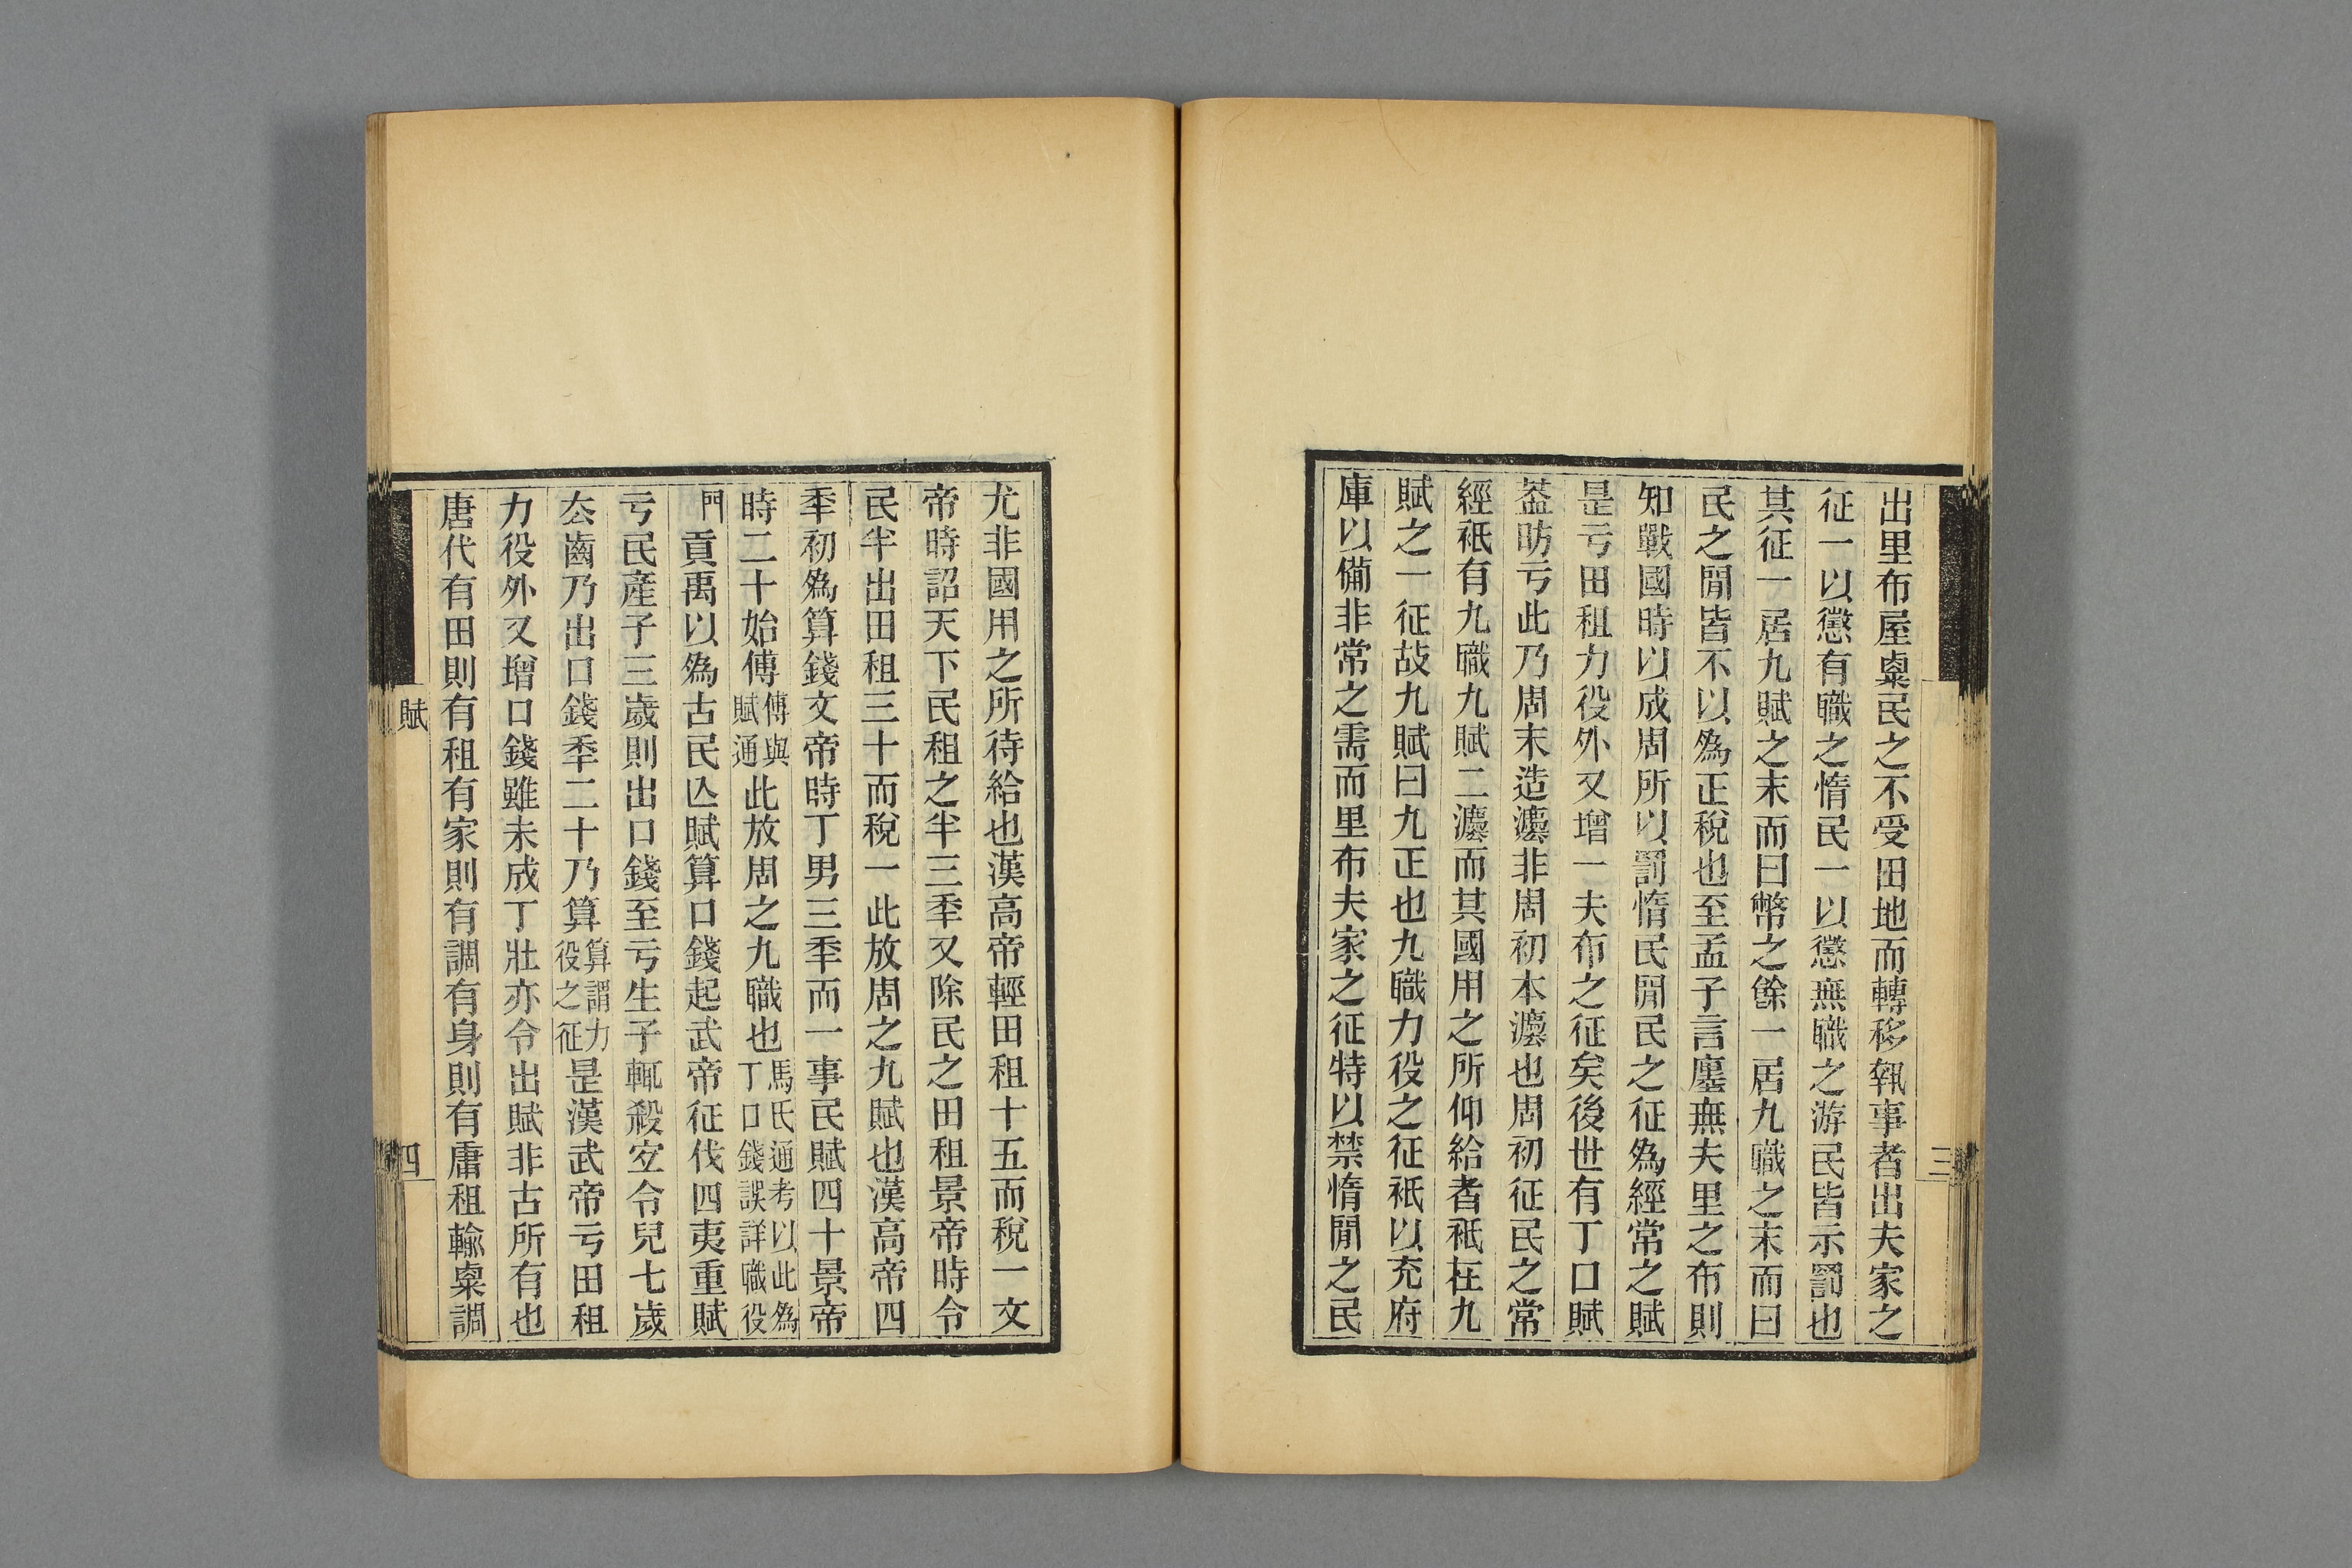 出里布屋粟民之不受田地而轉移執事者出夫家之
征一以懲有職之惰民一以懲無職之游民皆示罰也
其征一居九賦之末而曰幣之餘一居九職之末而曰
民之閒皆不以爲正稅也至孟子言廛無夫里之布則
知戰國時以成周所以罰惰民閒民之征爲經常之賦
是亏田租力役外又增一夫布之征矣後世有丁口賦
葢昉亏此乃周末造灋非周初本灋也周初征民之常
經祇有九職九賦二灋而其國用之所仰給者祇在九
賦之一征故九賦曰九正也九職力役之征祇以充府
庫以備非常之需而里布夫家之征特以禁惰閒之民
三
尤非國用之所待給也漢高帝輕田租十五而稅一文
帝時詔天下民租之半三秊又除民之田租景帝時令
民半出田租三十而稅一此放周之九賦也漢高帝四
秊初爲算錢文帝時丁男三秊而一事民賦四十景帝
時二十始傅傅與賦通此放周之九職也馬氏通考以此爲丁口錢誤詳職役
門貢禹以爲古民亾賦算口錢起武帝征伐四夷重賦
亏民產子三歲則出口錢至亏生子輒殺宐令兒七歲
厺齒乃出口錢秊二十乃算算謂力役之征是漢武帝亏田租
力役外又增口錢雖未成丁壯亦令出賦非古所有也
唐代有田則有租有家則有調有身則有庸租輸粟調
賦
四